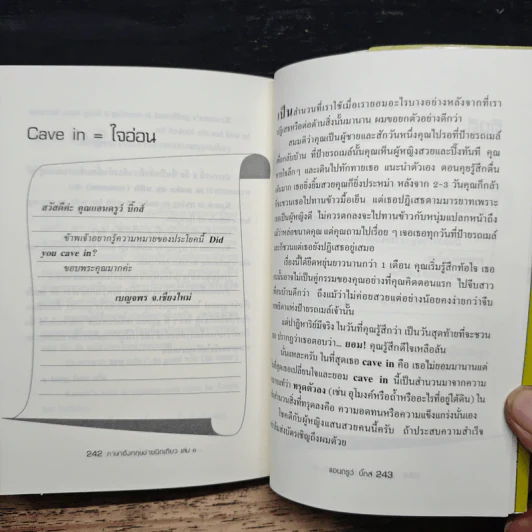 Cave in = ใจอ่อน
สวัสดีค่ะ คุณแอนดรูว์ บิ๊กส์
ข้าพเจ้าอยากรู้ความหมายของประโยคนี้ Did
you cave in?
ขอบพระคุณมากค่ะ
เบญจพร จ.เชียงใหม่
242 ภาษาอังกฤษง่ายนิดเดียว เล่ม
เป็นสำนวนที่เราใช้เมื่อเรายอมอะไรบางอย่างหลังจากที่เรา
ปฏิเสธหรือต่อต้านสิ่งนั้นมานาน ผมขอยกตัวอย่างดีกว่า
สมมติว่าคุณเป็นผู้ชายและสักวันหนึ่งคุณไปรอที่ป้ายรถเมล์
กลับบ้าน ที่ป้ายรถเมล์นั้นคุณเห็นผู้หญิงสวยและปิ๊งทันที คุณ
ใกล้ๆ และเดินไปทักทายเธอ แนะนำตัวเอง ตอนคุณรู้สึกตื่น
มาก เธอยิ้มสวยคุณก็ยิ่งประหม่า หลังจาก 2-3 วันคุณก็กล้า
ชวนเธอไปทานข้าวมื้อเย็น แต่เธอปฏิเสธตามมารยาทเพราะ
เป็นผู้หญิงดี ไม่ควรตกลงจะไปทานข้าวกับหนุ่มแปลกหน้าถึง
หล่อขนาดคุณ แต่คุณถามไปเรื่อย ๆ เจอเธอทุกวันที่ป้ายรถเมล์
ก็ชวนแต่เธอยังปฏิเสธอยู่เสมอ
เรื่องนี้ได้ยืดหยุ่นยาวนานกว่า 1 เดือน คุณเริ่มรู้สึกท้อใจ เธอ
อาจไม่เป็นคู่กรรมของคุณอย่างที่คุณคิดตอนแรก ไปจีบสาว
บ้านดีกว่า ถึงแม้ว่าไม่ค่อยสวยแต่อย่างน้อยคงง่ายกว่าจีบ
แห่งป้ายรถเมล์เจ้านั้น
แต่ปาฏิหาริย์มีจริง ในวันที่คุณรู้สึกว่า เป็นวันสุดท้ายที่จะชวน
ปรากฏว่าเธอตอบว่า... ยอม! คุณรู้สึกดีใจเหลือล้น
นั่นแหละครับ ในที่สุดเธอ cave in คือ เธอไม่ยอมมานานแต่
ที่สุดเธอเปลี่ยนใจและยอม cave in นี้เป็นสำนวนมาจากความ
ว่า ทรุดตัวลง (เช่น อุโมงค์หรือถ้ำหรืออะไรที่อยู่ใต้ดิน) ใน
สำนวนสิ่งที่ทรุดลงคือ ความอดทนหรือความแข็งแกร่งนั่นเอง
โชคดีกับผู้หญิงแสนสวยคนนี้ครับ ถ้าประสบความสำเร็จ
ส่งบัตรเชิญถึงผมด้วย
แอนดรูว์ บิ๊กส์ 243